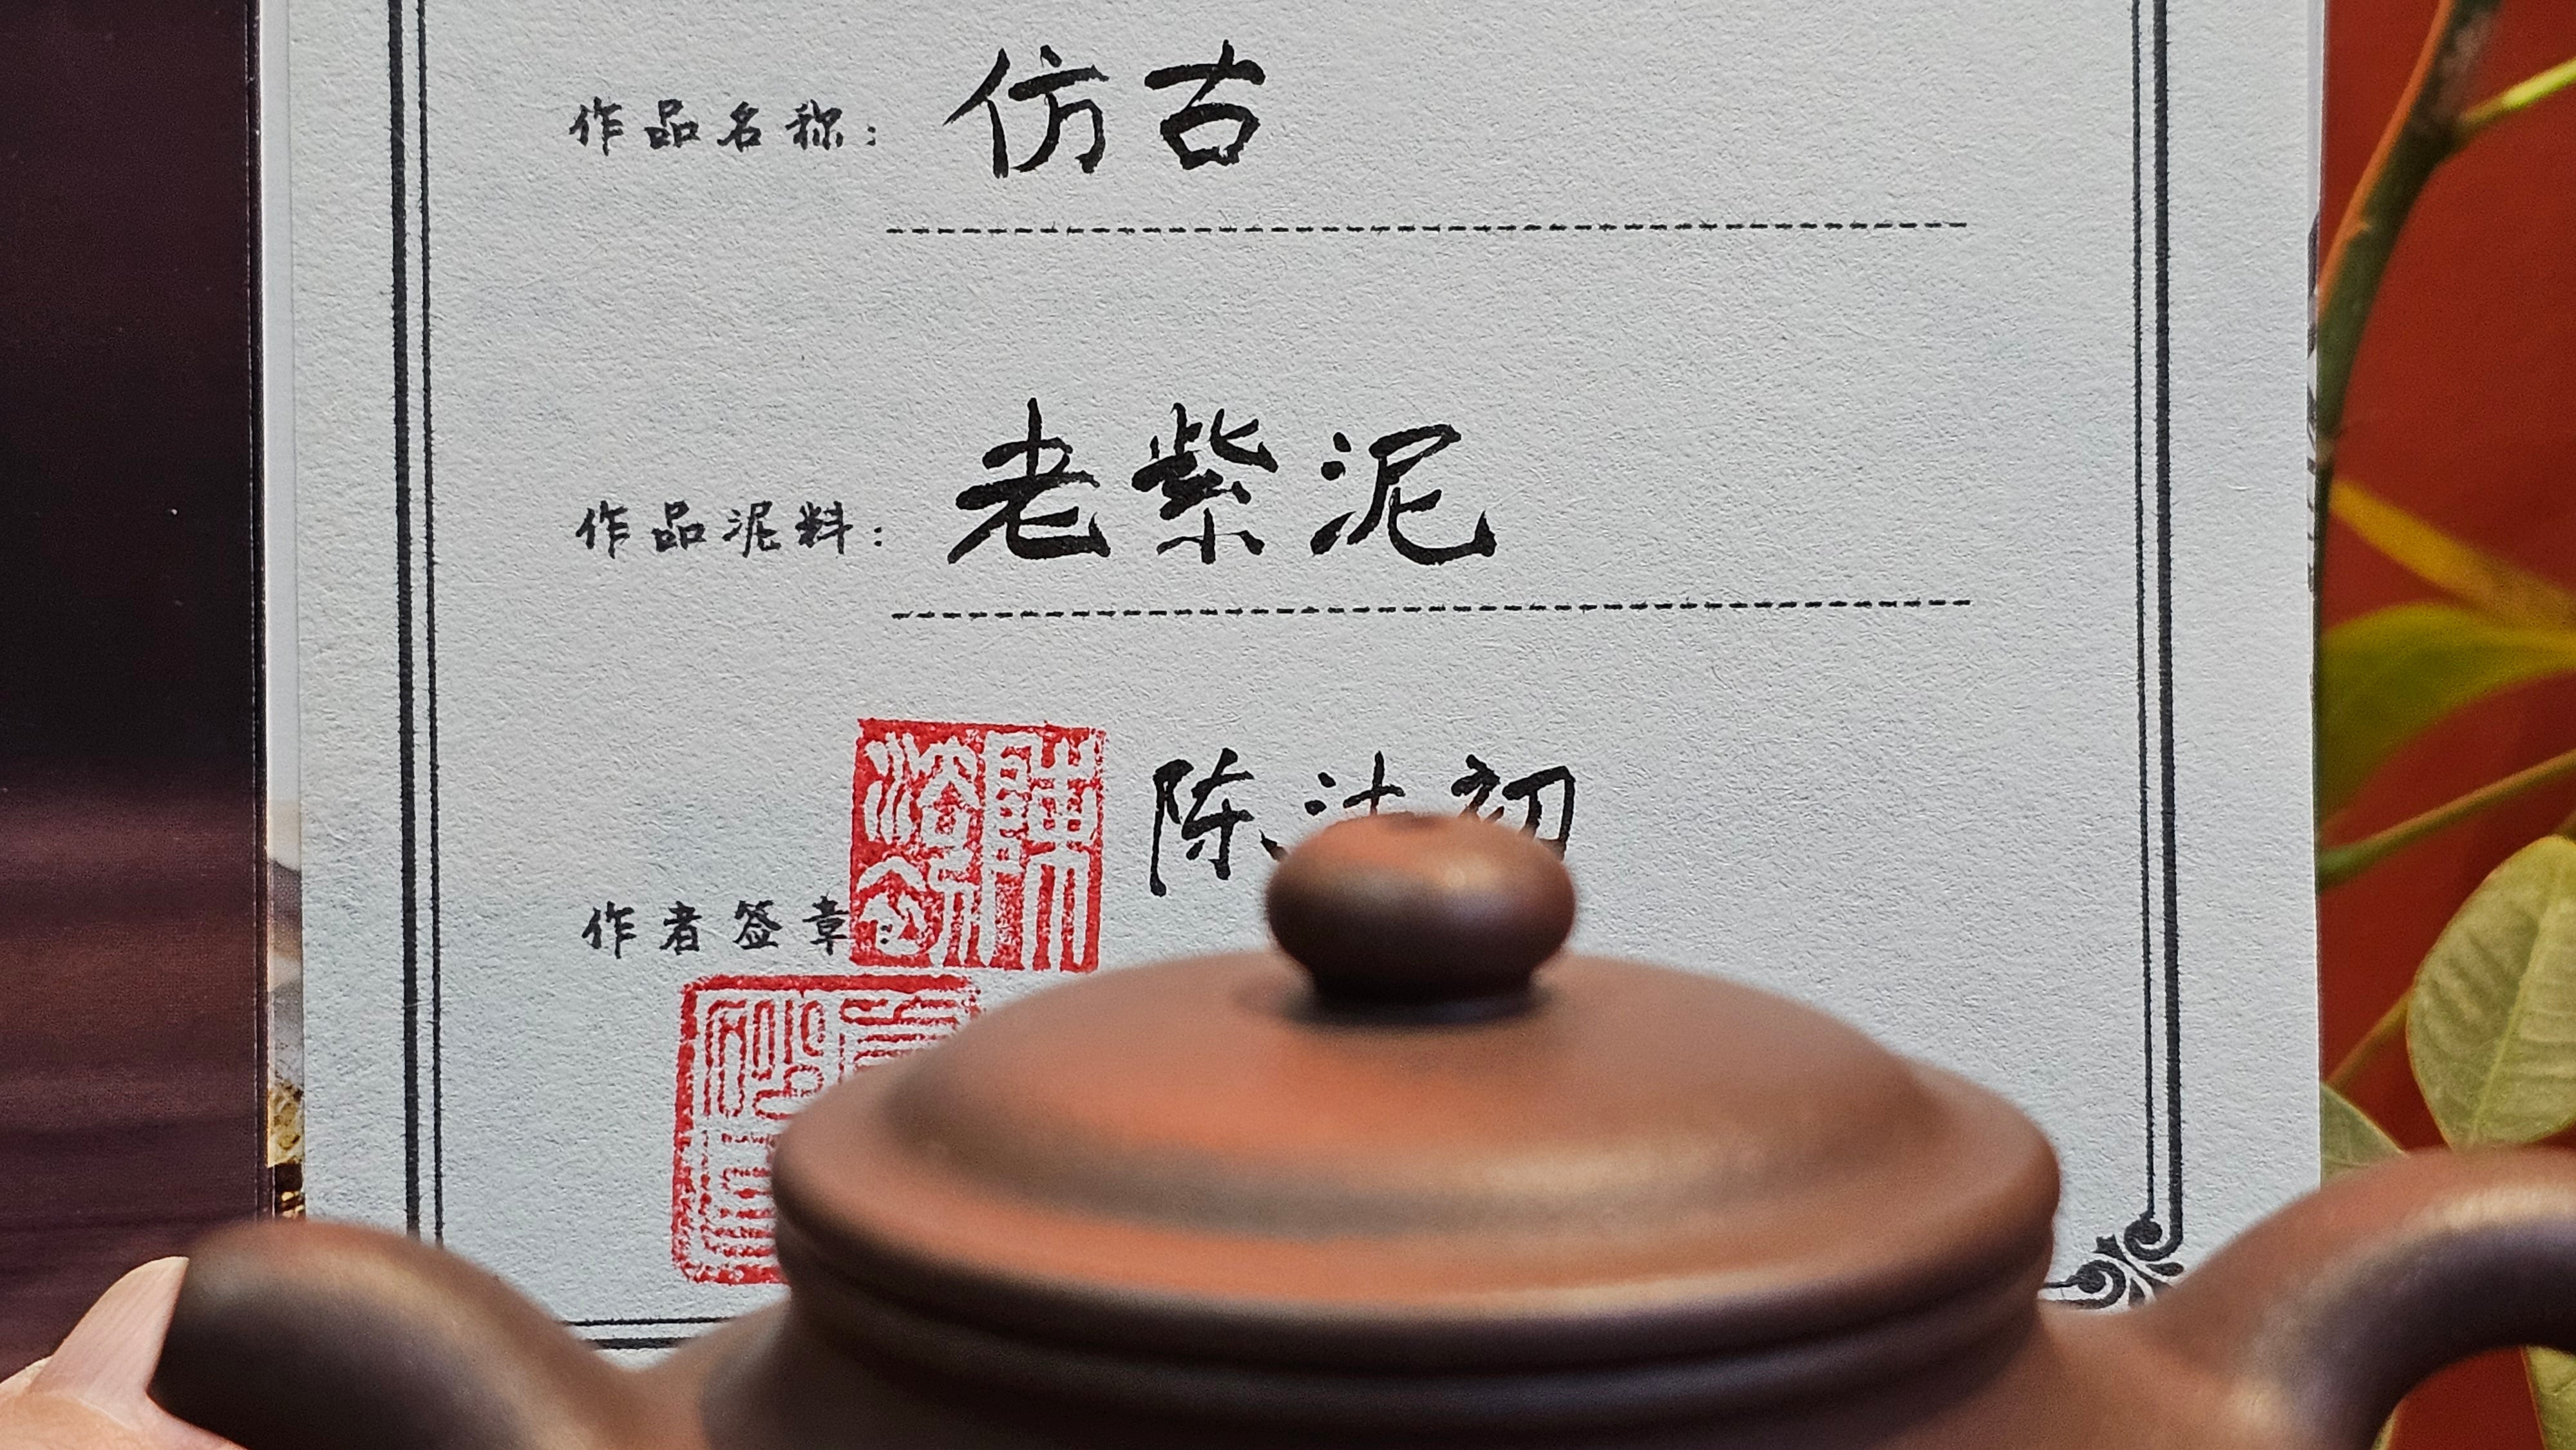 作品名称: 仿古
作品泥料: 老紫泥
陈 初
作者签章